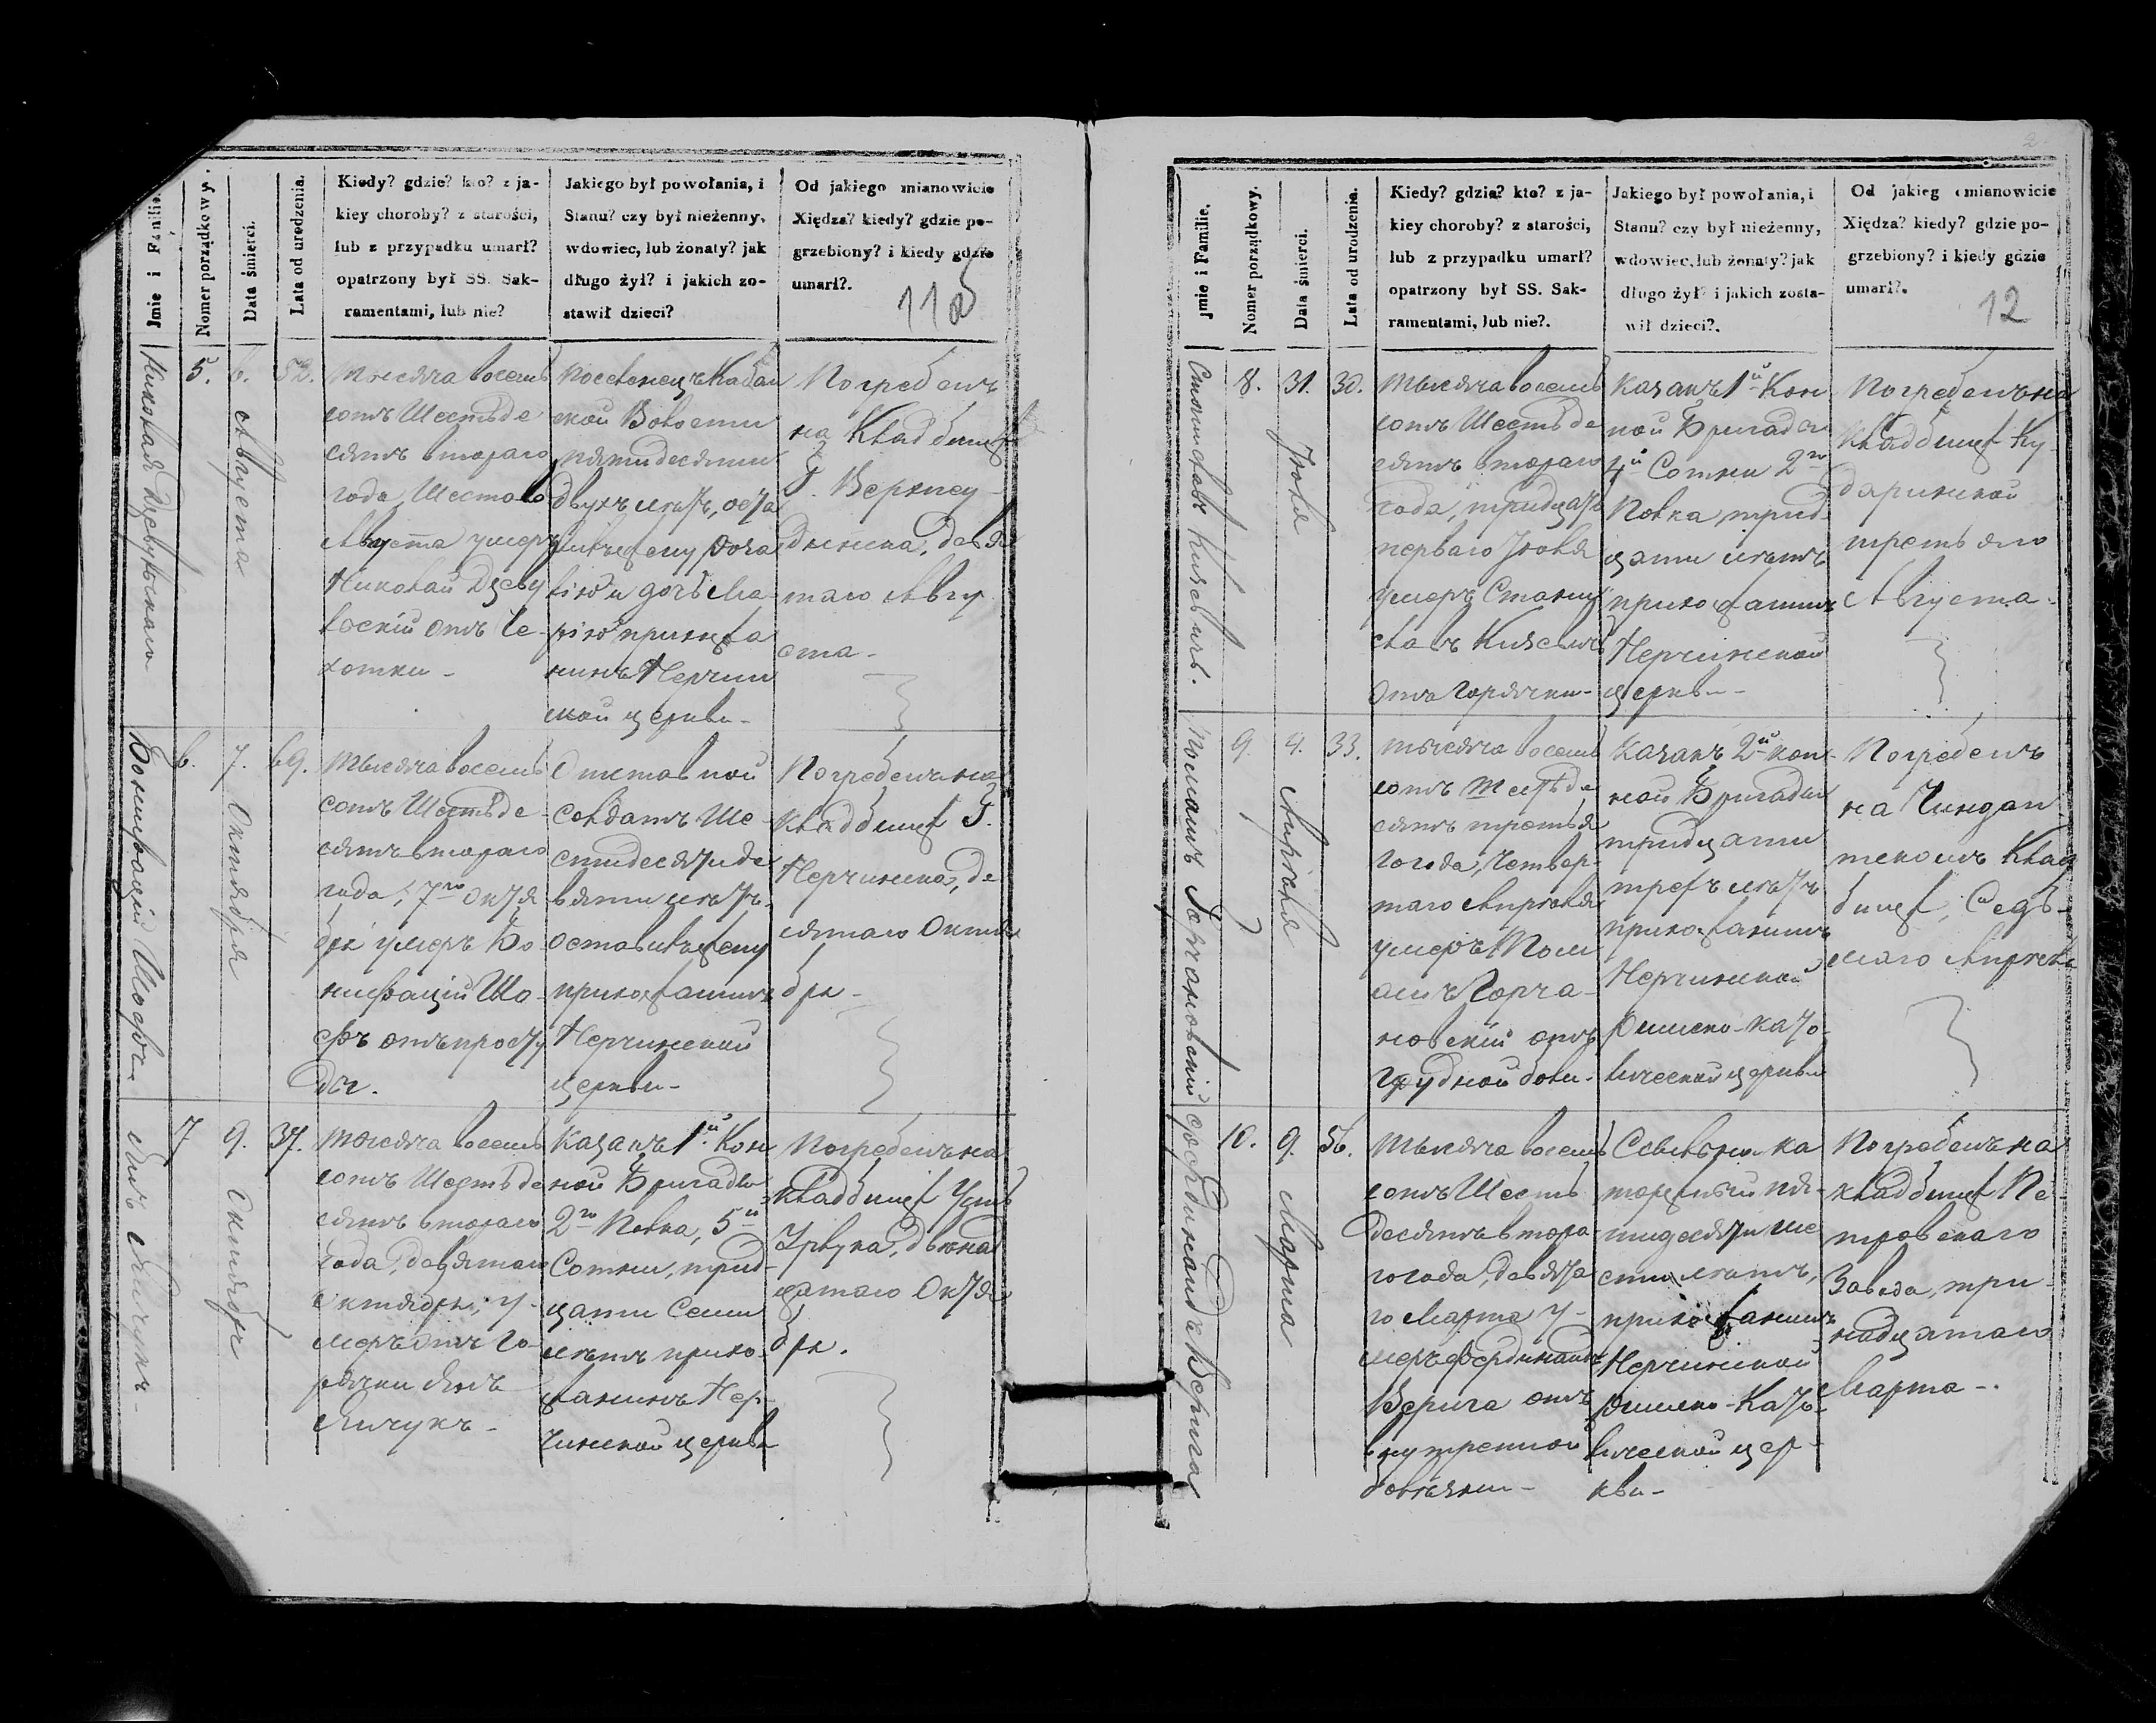 Jmie i Familie.
Nomer porządkowy.
Data śmierci.
Lata od urodzenia.
Kiedy? gdzie? kto? z ja-
kiey choroby? z starości,
lub z przypadku umarł?
opatrzony był SS. Sak-
ramentami, lub nie?
Jakiego był powołania, i
Stanu? czy był nieżenny,
wdowiec, lub żonaty? jak
długo żył? i jakich zo-
stawił dzieci?
Od jakiego mianowicie
Xiędza? kiedy? gdzie po-
grzebiony? i kiedy gdzie
umarł?.
11об
Николая
5.
6.
Августа
52.
Тысяча восемь
сотъ шестьде
сятъ втораго
года, Шестаго
Августа умеръ
Николай Дзеву
льскій отъ че-
хотки -
Поселенецъ Кабан
ской Волости
пятидесяти
двухъ летъ, оста
вивъ жену Роза
лію и дочь Ма-
рію прихожа
нинъ Нерчин
ской церкви -
Погребенъ
на Кладбище
Г. Верхнеу-
динска, девя
таго Авгу
ста -
Бонифацій Шосфъ
6.
7.
Октября
69.
Тысяча восемь
сотъ Шестьде-
сятъ втораго
года, 7го Октя
бря умеръ Бо-
нифацій Шо-
сфъ отъ просту
ды.
Отставной
солдатъ Ше-
стидесяти де
вяти летъ.
оставивъ жену
прихожанинъ
Нерчинской
церкви -
Погребенъ на
Кладбище Г.
Нерчинска, де
сятаго Октя
бря -
Янъ Янчукъ -
7
9.
Октября
37.
Тысяча восемь
сотъ Шестьде
сятъ втораго
года, девятаго
Октября, у-
меръ отъ го-
рячки Янъ
Янчукъ -
Казакъ 1й Кон
ной Бригады
2го Полка, 5й
Сотни, трид-
цати семи
летъ прихо-
жанинъ Нер-
чинской церкви
Погребенъ на
Кладбище Усть
Урлука, двенад
цатаго Октя
бря.
2
Jmie i Familie.
Nomer porządkowy.
Data śmierci.
Lata od urodzenia.
Kiedy? gdzie? kto? z ja-
kiey choroby? z starości,
lub z przypadku umarł?
opatrzony był SS. Sak-
ramentami, lub nie?.
Jakiego był powołania, i
Stanu? czy był nieżenny,
wdowiec, lub żonaty? jak
długo żył? i jakich zosta-
wił dzieci?.
Od jakieg omianowicie
Xiędza? kiedy? gdzie po-
grzebiony? i kiedy gdzie
umarł?.
12
Станиславъ Кизевичъ.
8.
31.
Іюля
30.
Тысяча восемь
сотъ Шестьде
сятъ втораго
года, тридцать
перваго Іюля
умеръ Станис
лавъ Кизевичъ
отъ горячки -
Казакъ 1й Кон
ной Бригады
4й Сотни 2го
Полка, трид-
цати летъ
прихожанинъ
Нерчинской
церкви -
Погребенъ на
Кладбище Ку-
даринской
третьяго
Августа -
Томашъ Горчановскій
9
4.
Апреля
33.
Тысяча восемь
сотъ Шестьде
сятъ третья
го года, Четвер-
таго Апреля
умеръ Том
ашъ Горча-
новскій отъ
грудной боли -
Казакъ 2й кон-
ной Бригады
тридцати
трехъ летъ
прихожанинъ
Нерчинской
Римско-Като-
лической церкви
Погребенъ
на Чиндан
тскомъ Клад
бище, Седь-
маго Апреля
Фердинандъ Верига
10.
9.
Марта
56.
Тысяча восемь
сотъ Шесть
десятъ втора
го года, девята
го Марта у-
меръ Фердинандъ
Верига отъ
внутренной
болезни -
Ссыльно-ка
торжный пя-
тидесяти ше
сти летъ,
прихожанинъ
Нерчинской
Римско-Като-
лической цер-
кви -
Погребенъ на
кладбище Пе-
тровскаго
Завода, три-
надцатаго
Марта -.